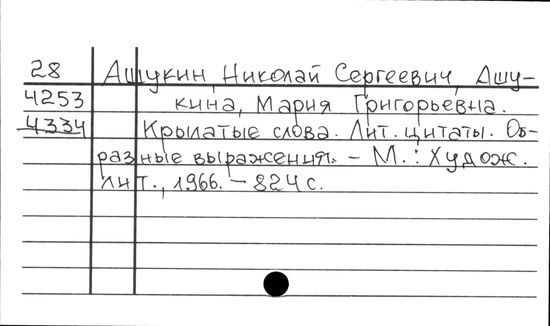 28 Ашукин, Николай Сергеевич, Ашу-
4253 кина, Мария Григорьевна.
4334 Крылатые слова. Лит. цитаты. Об-
разные выражения. - М.: Худож.
лит., 1966. - 824 с.